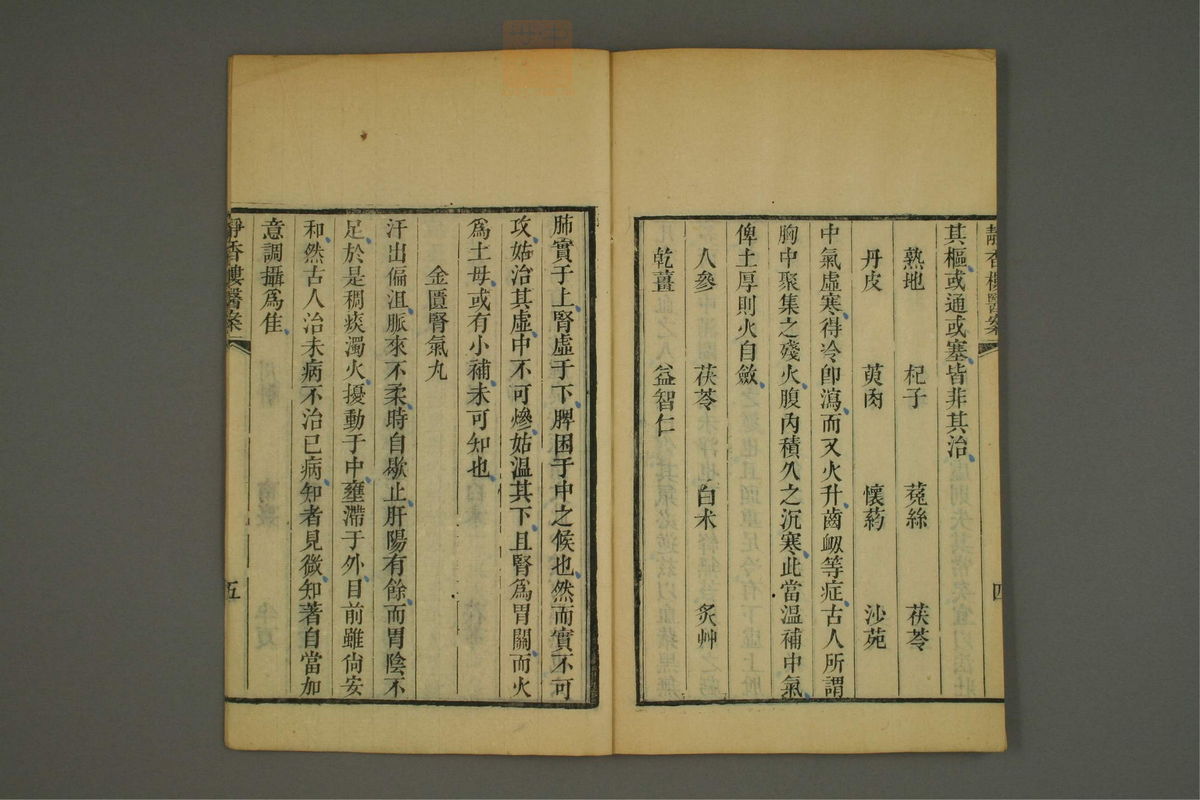 靜香樓醫案
四
其樞或通或塞皆非其治
熟地　杞子　菟絲　茯苓
丹皮　萸肉　懷药　沙苑
中氣虛寒得冷卽瀉而又火升齒衂等症古人所謂
胸中聚集之殘火腹內積久之沉寒此當溫補中氣
俾土厚則火自斂
人參　茯苓　白术　炙艸
乾薑　益智仁
肺實于上腎虛于下脾困于中之候也然而實不可
攻姑治其虛中不可燥姑溫其下且腎爲胃關而火
爲土母或有小補未可知也
金匱腎氣丸
汗出偏沮脈來不柔時自歇止肝陽有餘而胃陰不
足於是稠痰濁火擾動于中壅滯于外目前雖尙安
和然古人治未病不治已病知者見微知著自當加
意調攝爲佳
靜香樓醫案
五